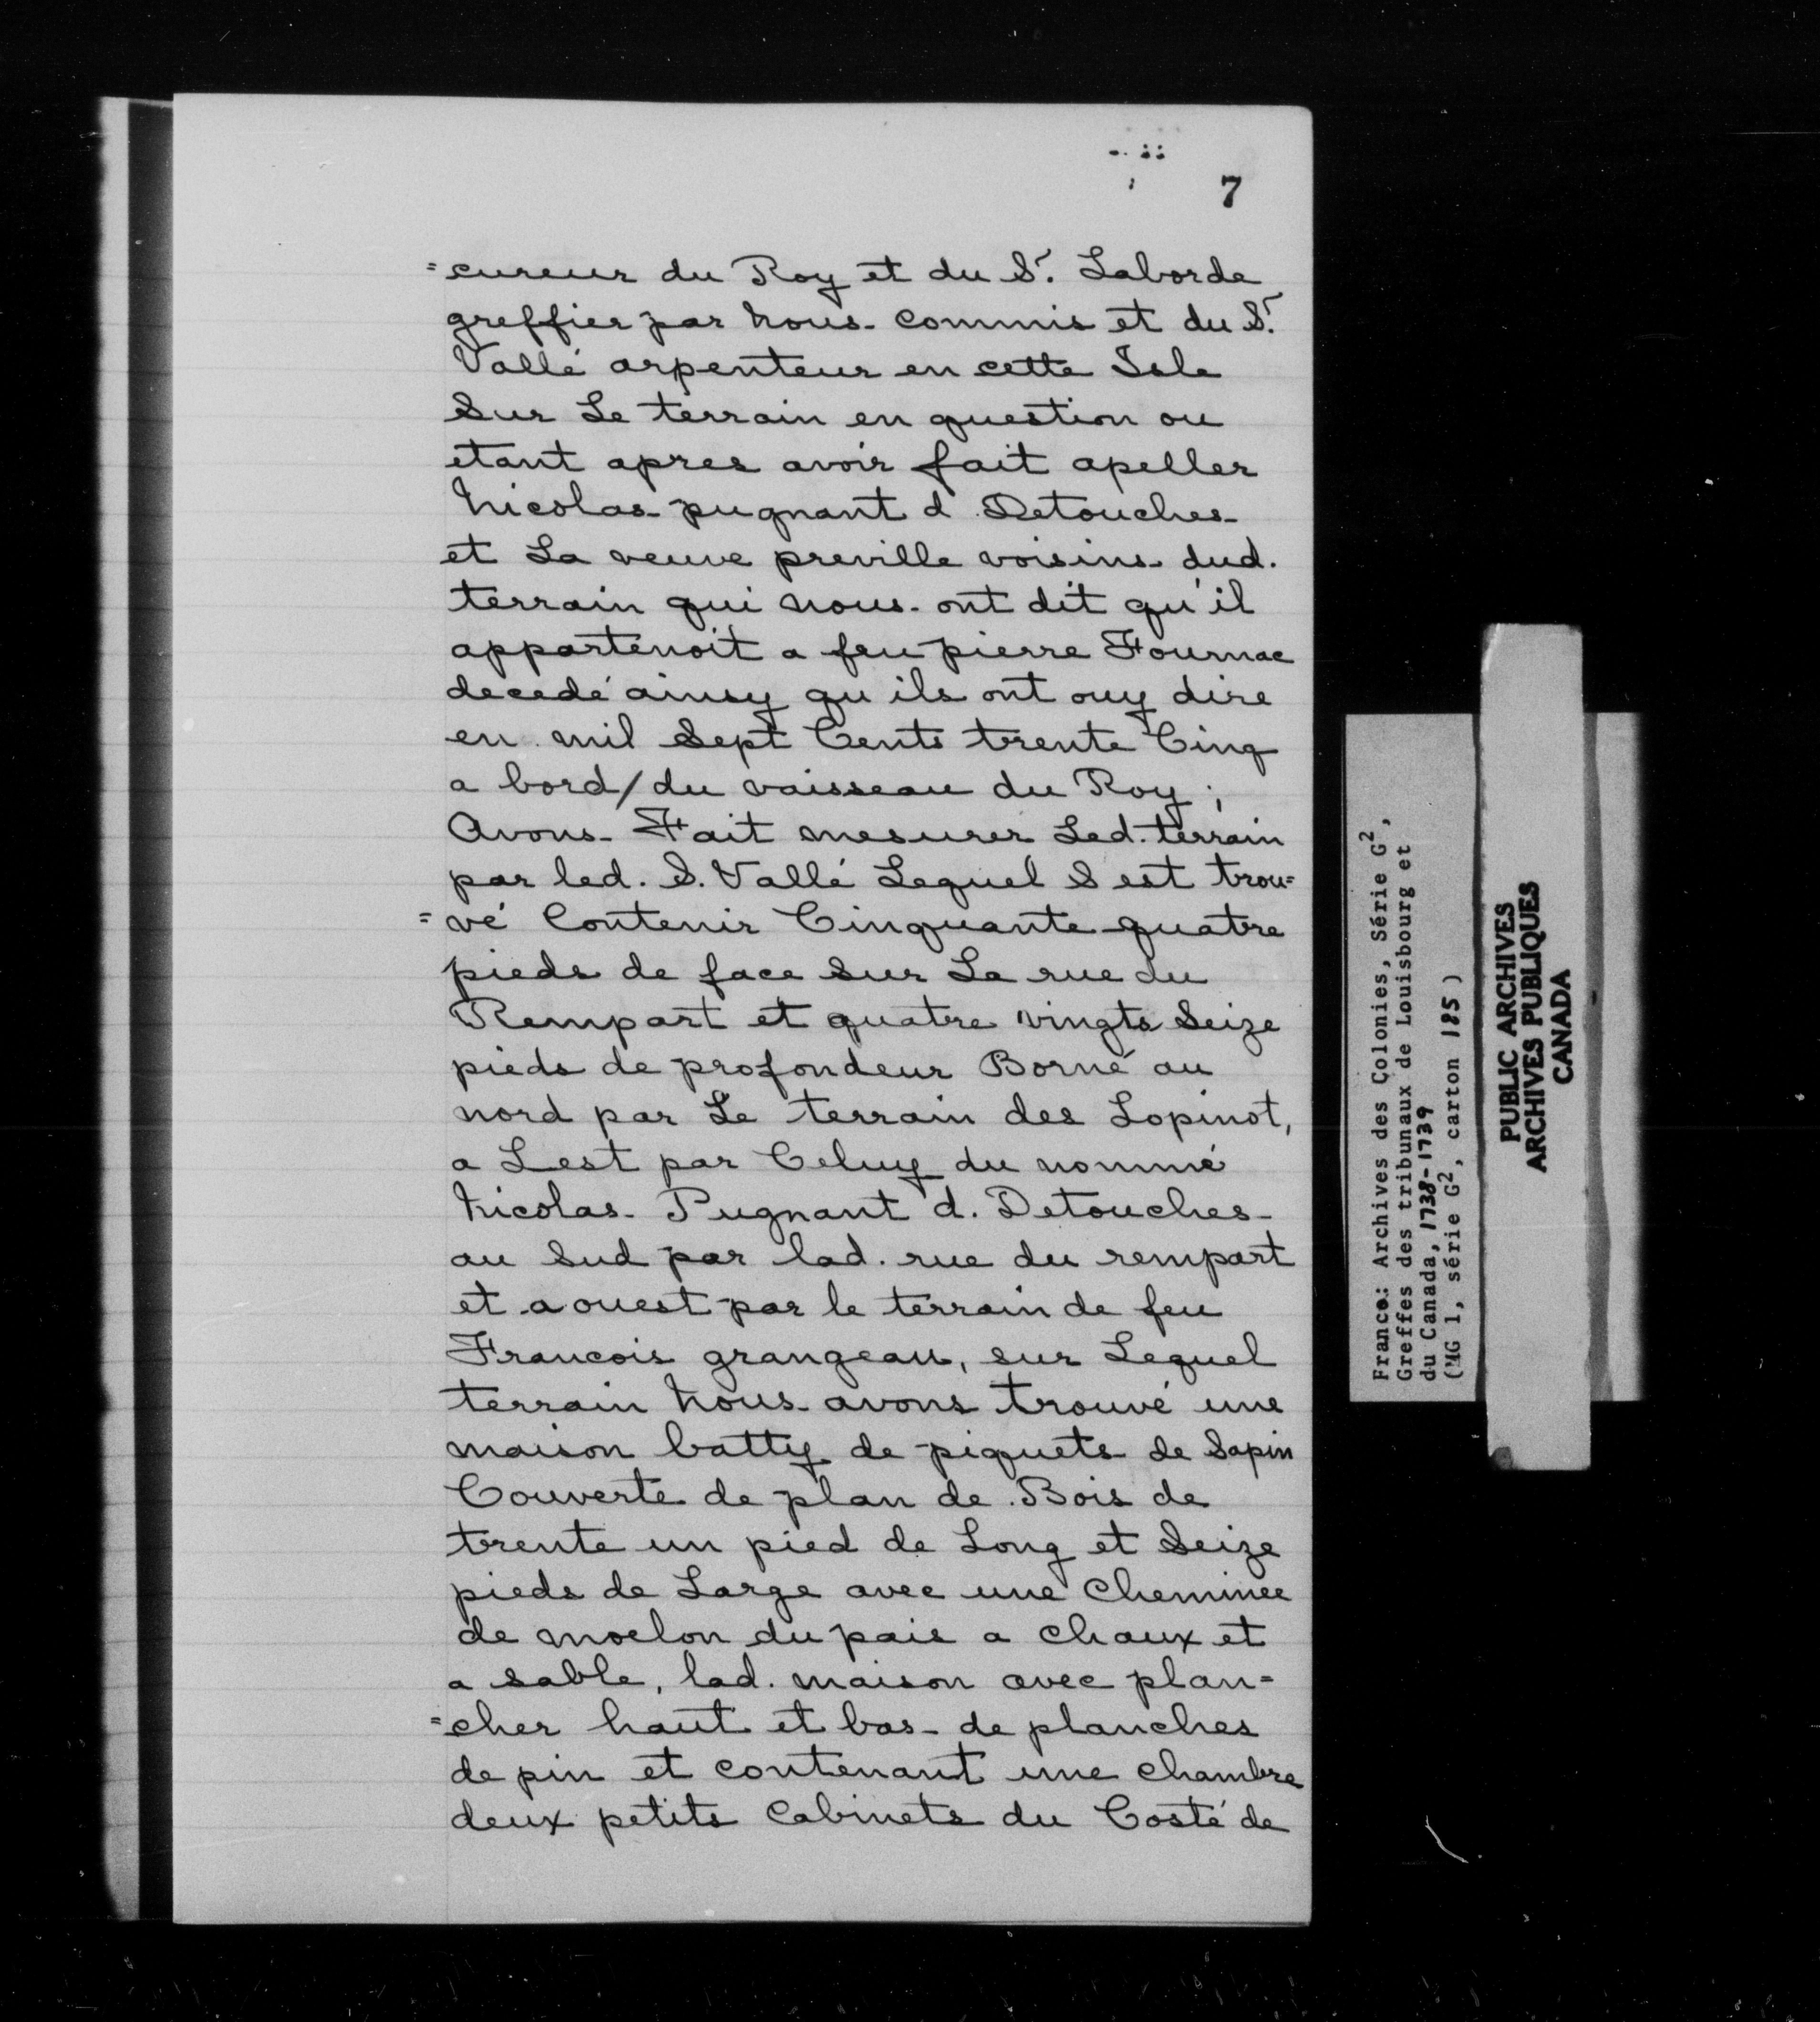 7
=cureur du Roy et du Sr. Laborde
greffier par nous commis et du Sr.
Vallé arpenteur en cette Isle
Sur Le terrain en question ou
etant apres avoir fait apeller
Nicolas pugnant d. Detouches
et La veuve preville voisins dud.
terrain qui nous ont dit qu'il
appartenoit a feu pierre Fournac
decedé ainsy qu ils ont ouy dire
en mil Sept Cents trente Cinq
a bord/du vaisseau du Roy ;
Avons Fait mesurer Led. terrain
par led. S. Vallé Lequel S est trou=
=vé Contenir Cinquante quatre
pieds de face Sur La rue du
Rempart et quatre vingts Seize
pieds de profondeur Borné au
nord par Le terrain des Lopinot,
a Lest par Celuy du nommé
Nicolas Pugnant d. Detouches
au Sud par lad. rue du rempart
et a ouest par le terrain de feu
Francois grangeau, sur Lequel
terrain Nous avons trouvé une
maison batty de piquets de Sapin
Couverte de plan de Bois de
trente un pied de Long et Seize
pieds de Large avec une Cheminee
de moelon du pais a chaux et
a sable, lad. maison avec plan=
=cher haut et bas de planches
de pin et contenant une chambre
deux petits Cabinets du Costé de
France: Archives des Colonies, Série G2,
Greffes des tribunaux de Louisbourg et
du Canada, 1738-1739
(MG 1, série G2, carton 185)
PUBLIC ARCHIVES
ARCHIVES PUBLIQUES
CANADA